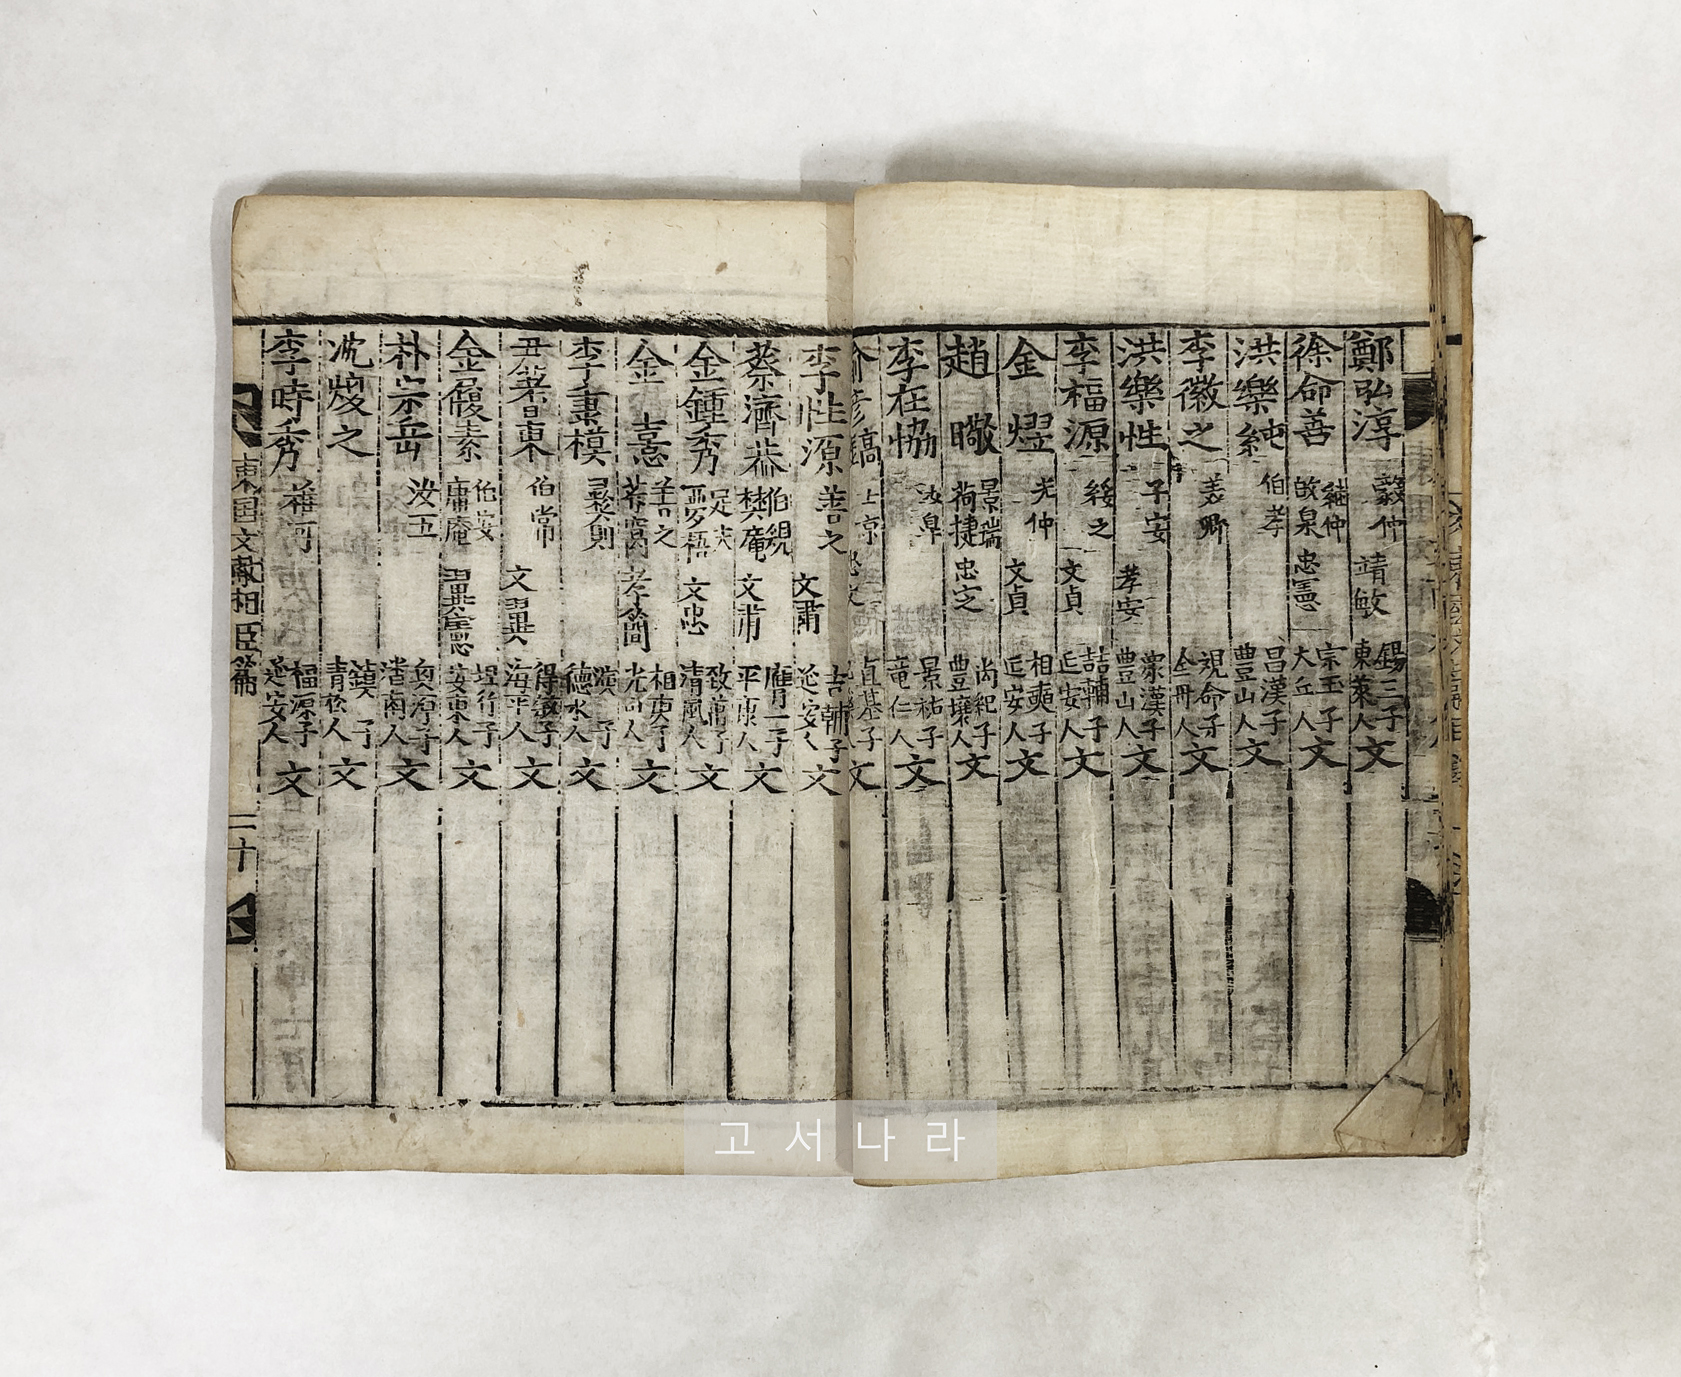 鄭弘淳 毅仲 靖敏 錫三子 東萊人 文
徐命善 繼仲 故泉 忠憲 宗玉子 大丘人 文
洪樂純 伯孝 昌漢子 豊山人 文
李徽之 美卿 觀命子 全州人 文
洪樂性 子安 孝安 象漢子 豊山人 文
李福源 綏之 文貞 喆輔子 延安人 文
金熤 光仲 文貞 相奭子 延安人 文
趙暾 景瑞 荷捷 忠定 尚紀子 豊壤人 文
李在協 汝皐 景祜子 竜仁人 文
直基子 文
李性源 善之 文肅 吉輔子 延安人 文
蔡濟恭 伯規 樊庵 文肅 膺一子 平康人 文
金鍾秀 定夫 夢梧 文忠 致萬子 清風人 文
金憙 善之 芹窩 孝簡 相奭子 光山人 文
李秉模 彛則 演子 德水人 文
尹蓍東 伯常 文翼 得敏子 海平人 文
金履素 伯安 庸庵 翼憲 坦行子 安東人 文
朴宗岳 汝五 潘南人 文
沈煥之 鎮子 青松人 文
李時秀 福源子 延安人 文
東国文献相臣篇 二十
고서나라